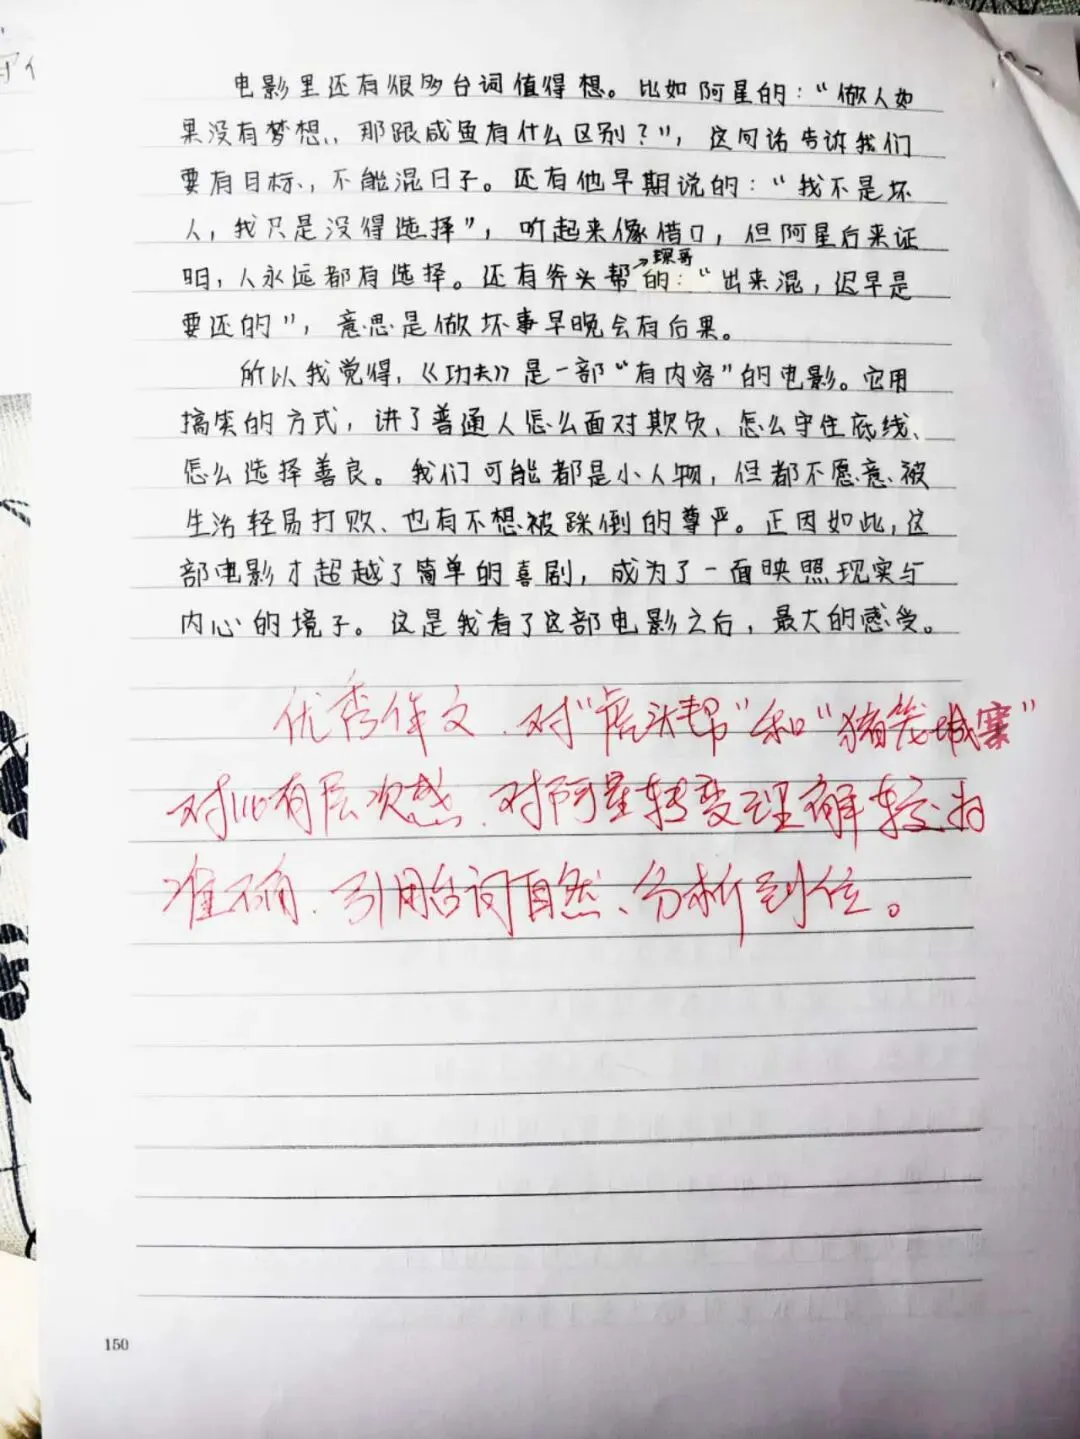 电影里还有很多台词值得想。比如阿星的：“做人如
果没有梦想，那跟咸鱼有什么区别？”，这句话告诉我们
要有目标，不能混日子。还有他早期说的：“我不是坏
人，我只是没得选择”，听起来像借口，但阿星后来证
明，人永远都有选择。还有斧头帮琛哥的：“出来混，迟早是
要还的”，意思是做坏事早晚会有后果。
所以我觉得，《功夫》是一部“有内容”的电影。它用
搞笑的方式，讲了普通人怎么面对欺负、怎么守住底线、
怎么选择善良。我们可能都是小人物，但都不愿意被
生活轻易打败、也有不想被踩倒的尊严。正因如此，这
部电影才超越了简单的喜剧，成为了一面映照现实与
内心的境子。这是我看了这部电影之后，最大的感受。
优秀作文、对“虎头帮”和“猪笼城寨”
对比有层次感、对阿星转变理解较为
准确、引用台词自然、分析到位。
150